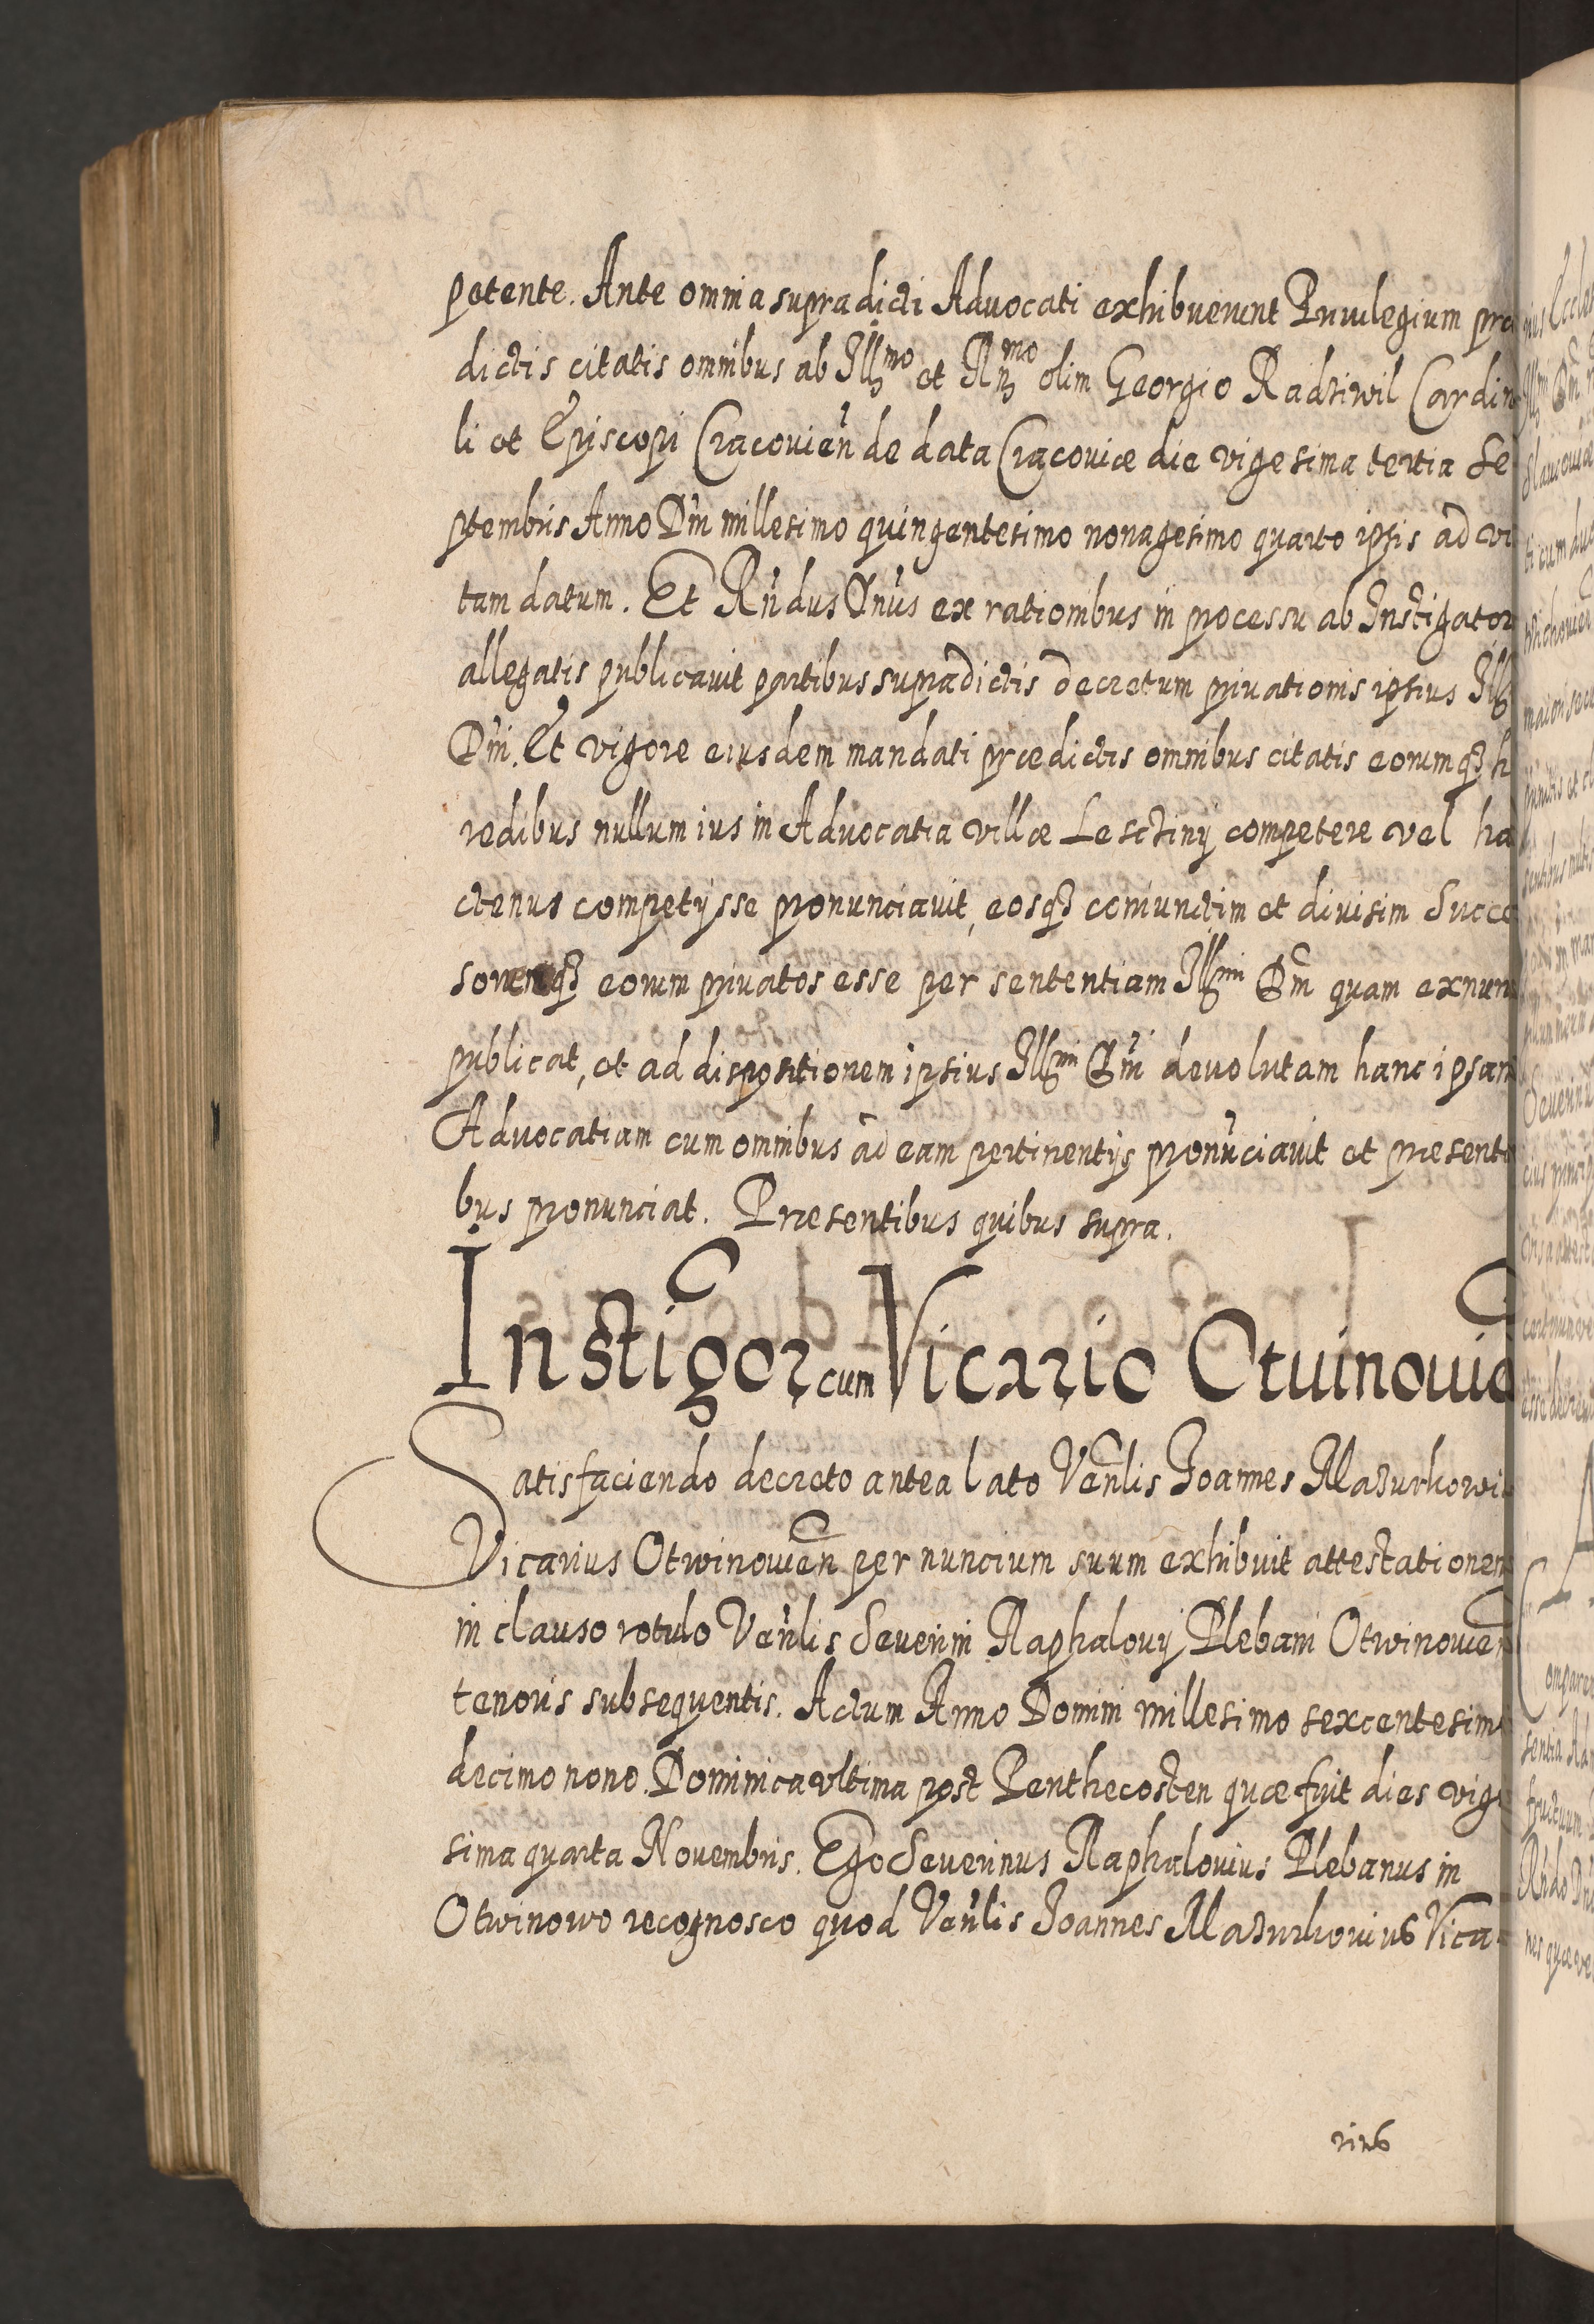 petente. Ante omnia supradicti Advocati exhibuerunt Privilegium præ
dictis citatis omnibus ab Illmo et Rmo olim Georgio Radziwil Cardin
li et Episcopi Cracovień de data Cracoviæ die vigesima tertia Se
ptembris Anno Dni millesimo quingentesimo nonagesimo quarto ipsis ad vi
tam datum. Et Rńdus Dńus ex rationibus in processu ab Instigator
allegatis publicavit partibus supradictis decretum privationis ipsius Ill
Dńi. Et vigore eiusdem mandati prædictis omnibus citatis eorumq3 h
redibus nullum ius in Advocatia villæ Lesctiny competere vel ha
ctenus competysse pronunciavit, eosq3 coniunctim et divisim Succe
soresq3 eorum privatos esse per sententiam Illmi Dni quam exnunc
publicat, et ad dispositionem ipsius Illmi Dńi devolutam hanc ipsam
Advocatiam cum omnibus ad eam pertinentijs pronúciavit et præsenti
bus pronunciat. Præsentibus quibus supra.
Instigor cum Vicario Otuinouie
Satisfaciendo decreto antea lato Venlis Joannes Mazurkowi
Vicarius Otwinowien per nuncium suum exhibuit attestationem
in clauso rotulo Veńlis Severini Raphalovij Plebani Otwinowien
tenoris subsequentis. Actum Anno Domini millesimo sexcentesimo
decimo nono. Dominica ultima post Penthecosten quæ fuit dies vige
sima quarta Novembris. Ego Severinus Raphalovius Plebanus in
Otwinowo recognosco quod Veńlis Joannes Mazurkovius Vica
rius